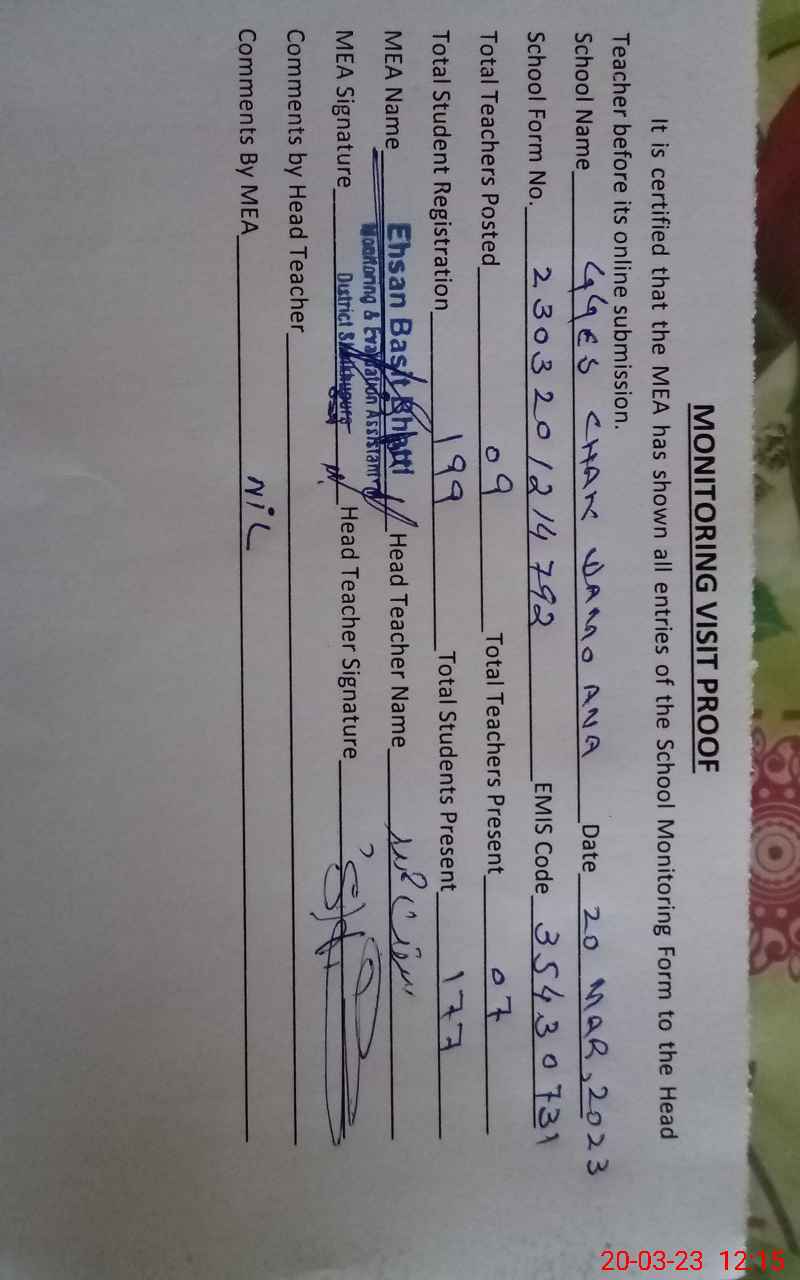 MONITORING VISIT PROOF
It is certified that the MEA has shown all entries of the School Monitoring Form to the Head
Teacher before its online submission.
School Name GGES CHAK WAMOANA Date 20 MAR, 2023
School Form No. 2303201214792 EMIS Code 35430731
Total Teachers Posted 09 Total Teachers Present 07
Total Student Registration 199 Total Students Present 177
MEA Name Ehsan Basit Bhatti Head Teacher Name
Monitoring & Evaluation Assistant
MEA Signature District Sheikhupura Head Teacher Signature
Comments by Head Teacher
Comments By MEA NiL
20-03-23 12:15